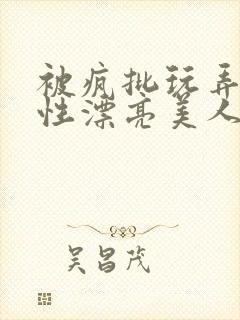 被疯批玩弄
性漂亮美人
吴昌茂